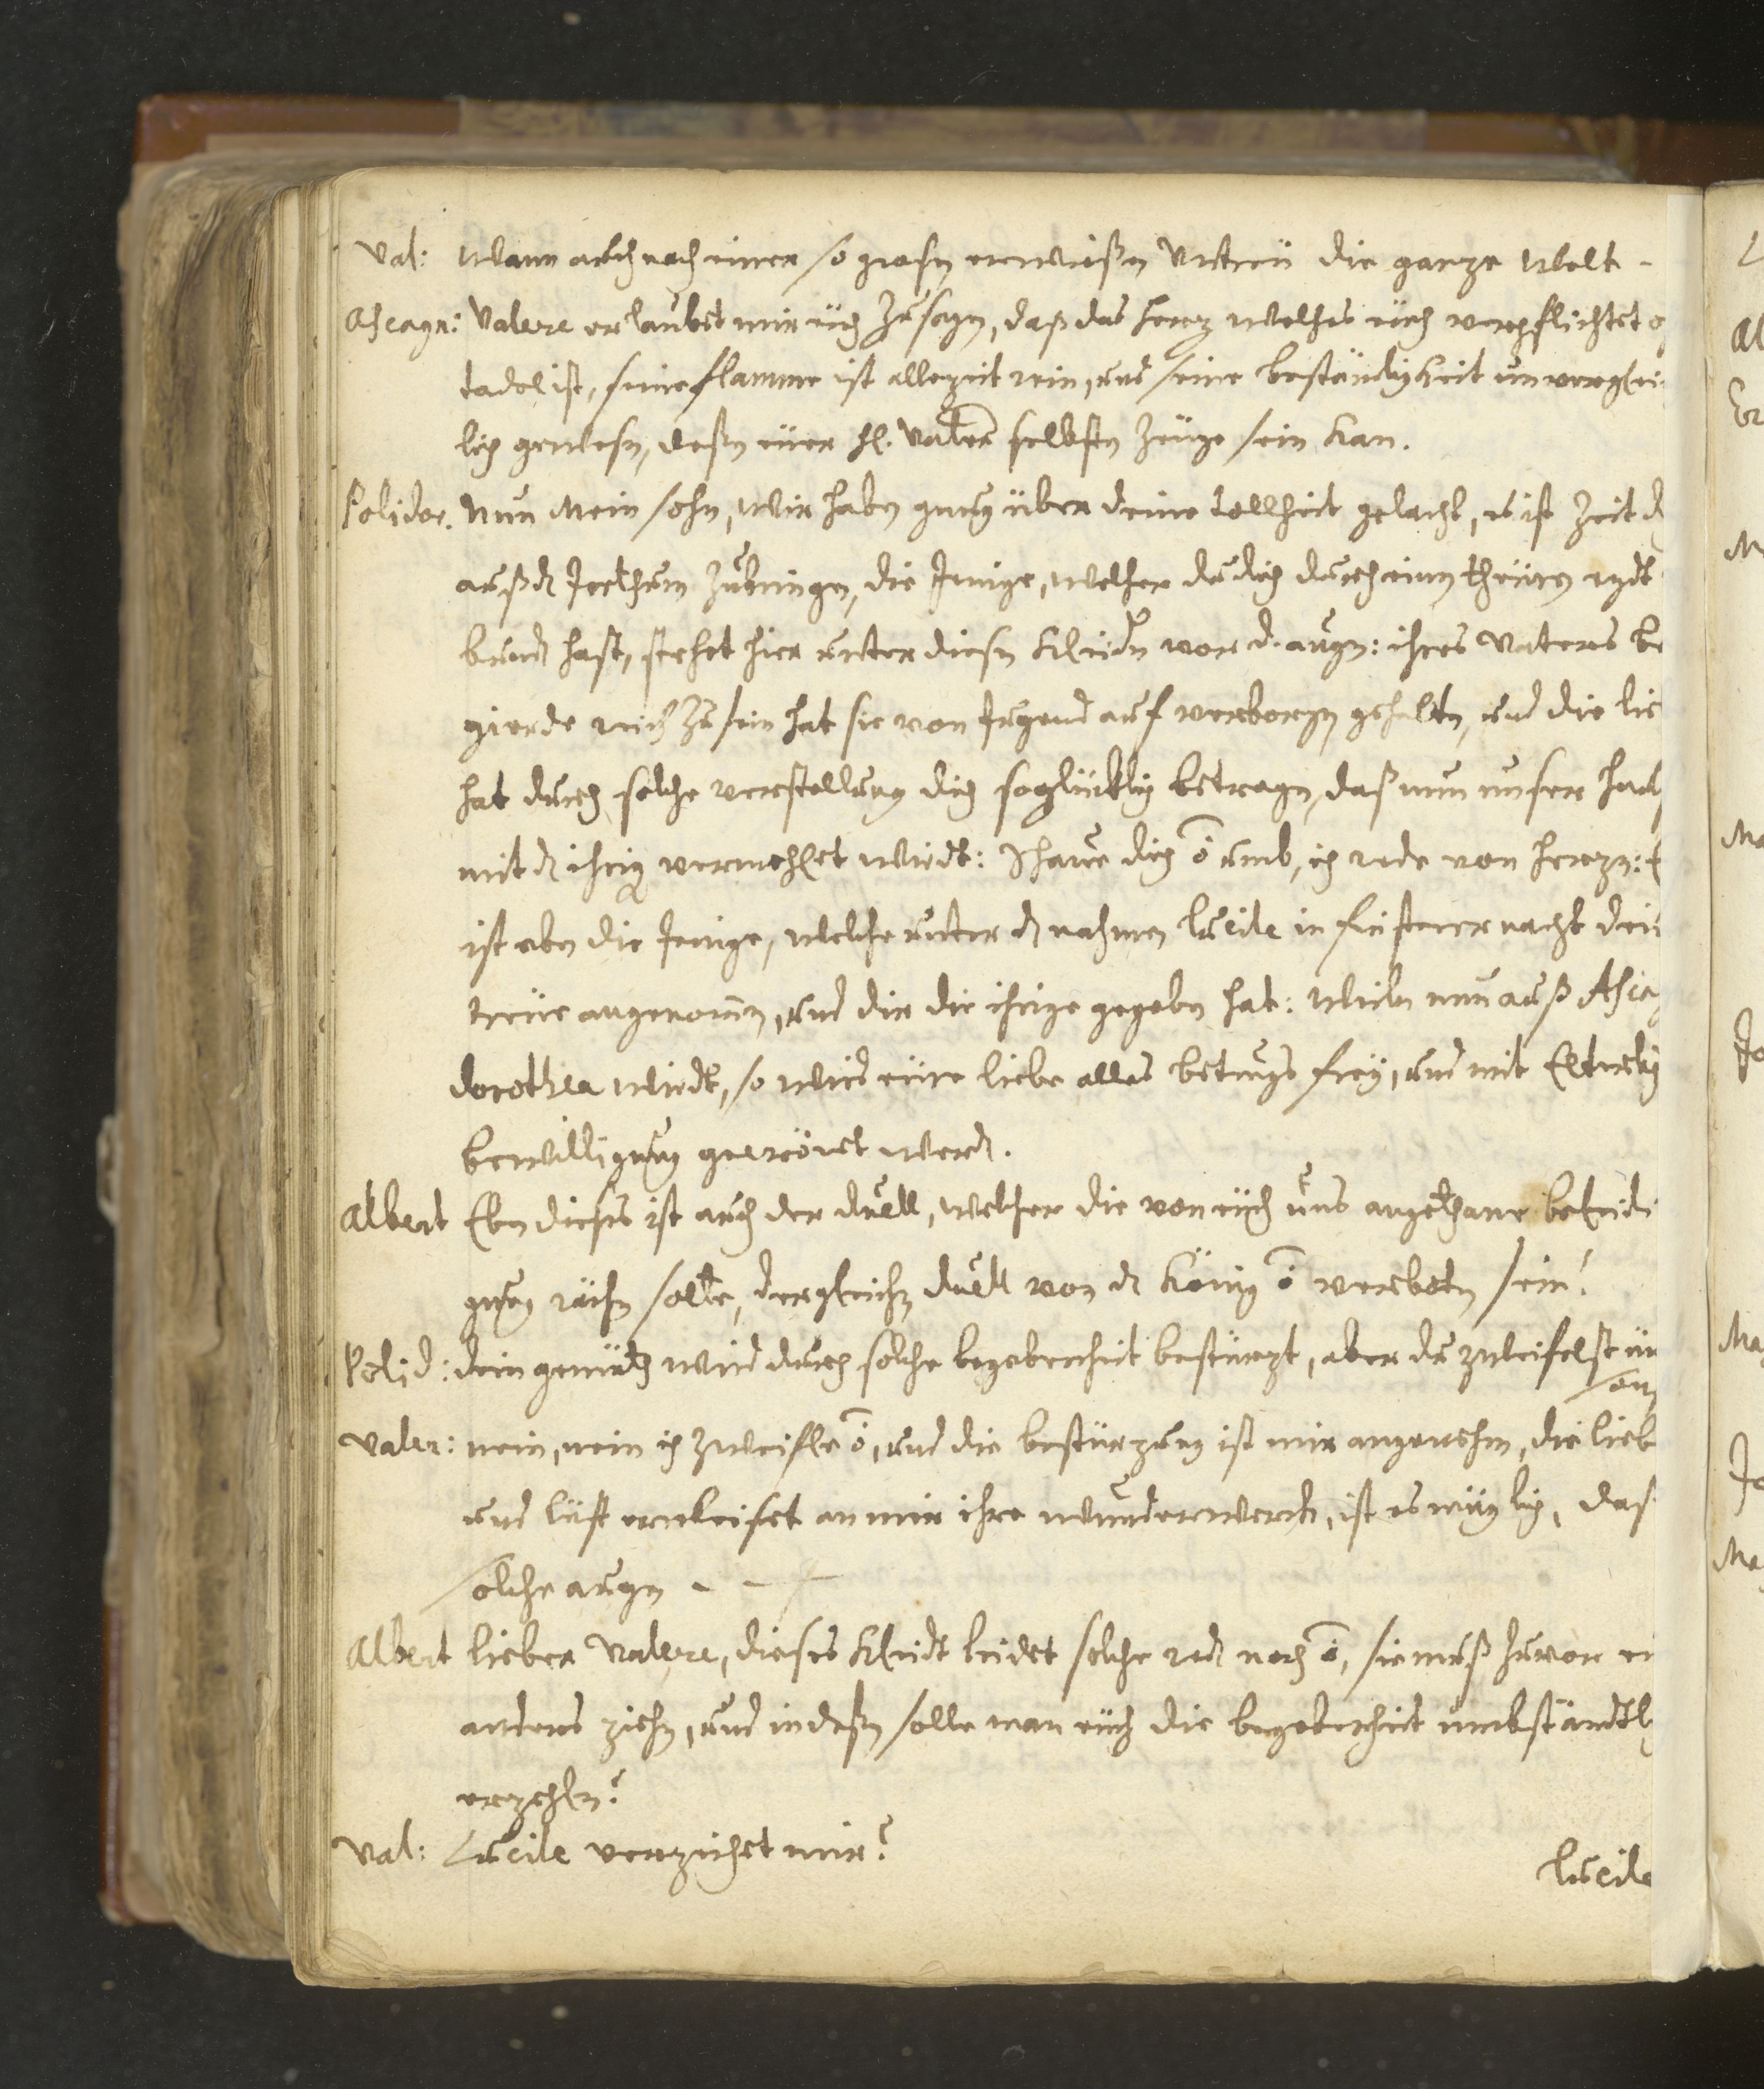 Val: Wann auch nach einer so grosen erwießen Untreü die ganze Welt -
Ascagn: Valere erlaubet mir eüch zusagen, daß das Herz welches eüch verpflichtet o
tadel ist, seine flamme ist allezeit rein, und seine beständigkeit unvergleich
lich gewesen, deßen eüer H. Vater selbsten Zeüge sein kan.
Polidor. Nun Mein sohn, wir haben genug über deine tollheit gelacht, es ist Zeit d
auß dem Irrthum zubringen, die Jenige, welcher du dich durch einen theüren eydt
bunden hast, stehet hier unter diesen Kleidern vor d. augen: ihres Vaters be
gierde reich zu sein hat sie von Jugend auf verborgen gehalten, und die lie
hat durch solche verstellung dich so glücklich betrogen, daß nun unser hauß
mit dem ihrigen vermehlet wirdt: Schaue dich ō umb, ich rede von Herzen:
ist eben die Jenige, welche unter dem nahmen Lucile in finsterer nacht dein
treüe angenomen, und dir die ihrige gegeben hat: Weilen nun auß Ascag
dorothea wirdt, so wird eüre liebe alles betrugs frey, und mit
bewilligung gecrönet werden.
Albert Eben dieses ist auch der duell, welcher die von eüch uns angethane beleidi
gung rächen solte, dergleichen duell von dem König ō verboten sein!
Polid: dein gemüth wird durch solche begebenheit bestürzt, aber du zweifelst
Valer: nein, nein ich zweifle ō, und die bestürzung ist mir angenehm, die lieb
und lust erweiset an mir ihre wunderwerck, ist es müglich, das
solche augen - - -
Albert lieber Valere, dieses Kleidt leidet solche reden noch ō, sie muß zuvor ein
anders ziehen, und indeßen solle man eüch die begebenheit umbständtl
erzehlen?
Val: Lucile verzeihet mir?
Lucile